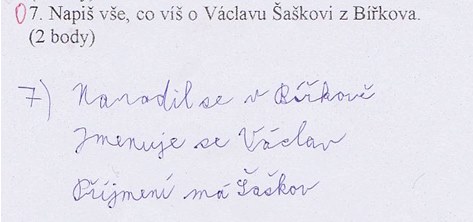 0 7. Napiš vše, co víš o Václavu Šaškovi z Bířkova.
(2 body)
7) Narodil se v Bířkově
Jmenuje se Václav
Příjmení má Šaškov